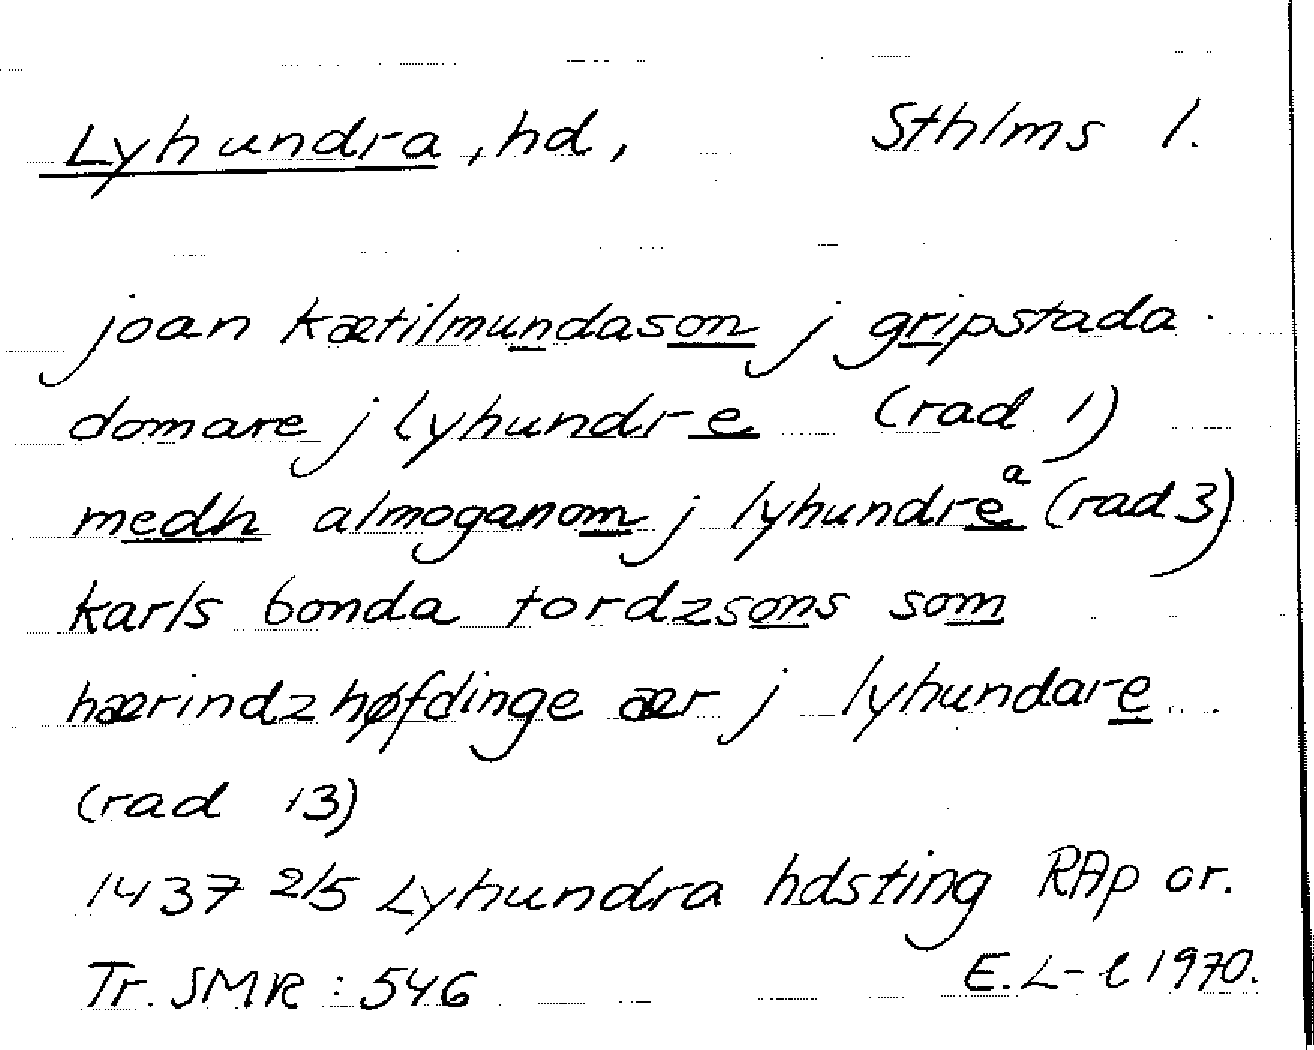 Lyhundra, hd, Sthlms l.
joan kætilmundason j gripstada
domare j lyhundre (rad 1)
medh almoganom j lyhundreª (rad 3)
karls bonda tordzsons som
hærindzhøfdinge ær j lyhundare
(rad 13)
1437 2/5 Lyhundra hdsting RAp or.
Tr. SMR: 546 E.L-l 1970.